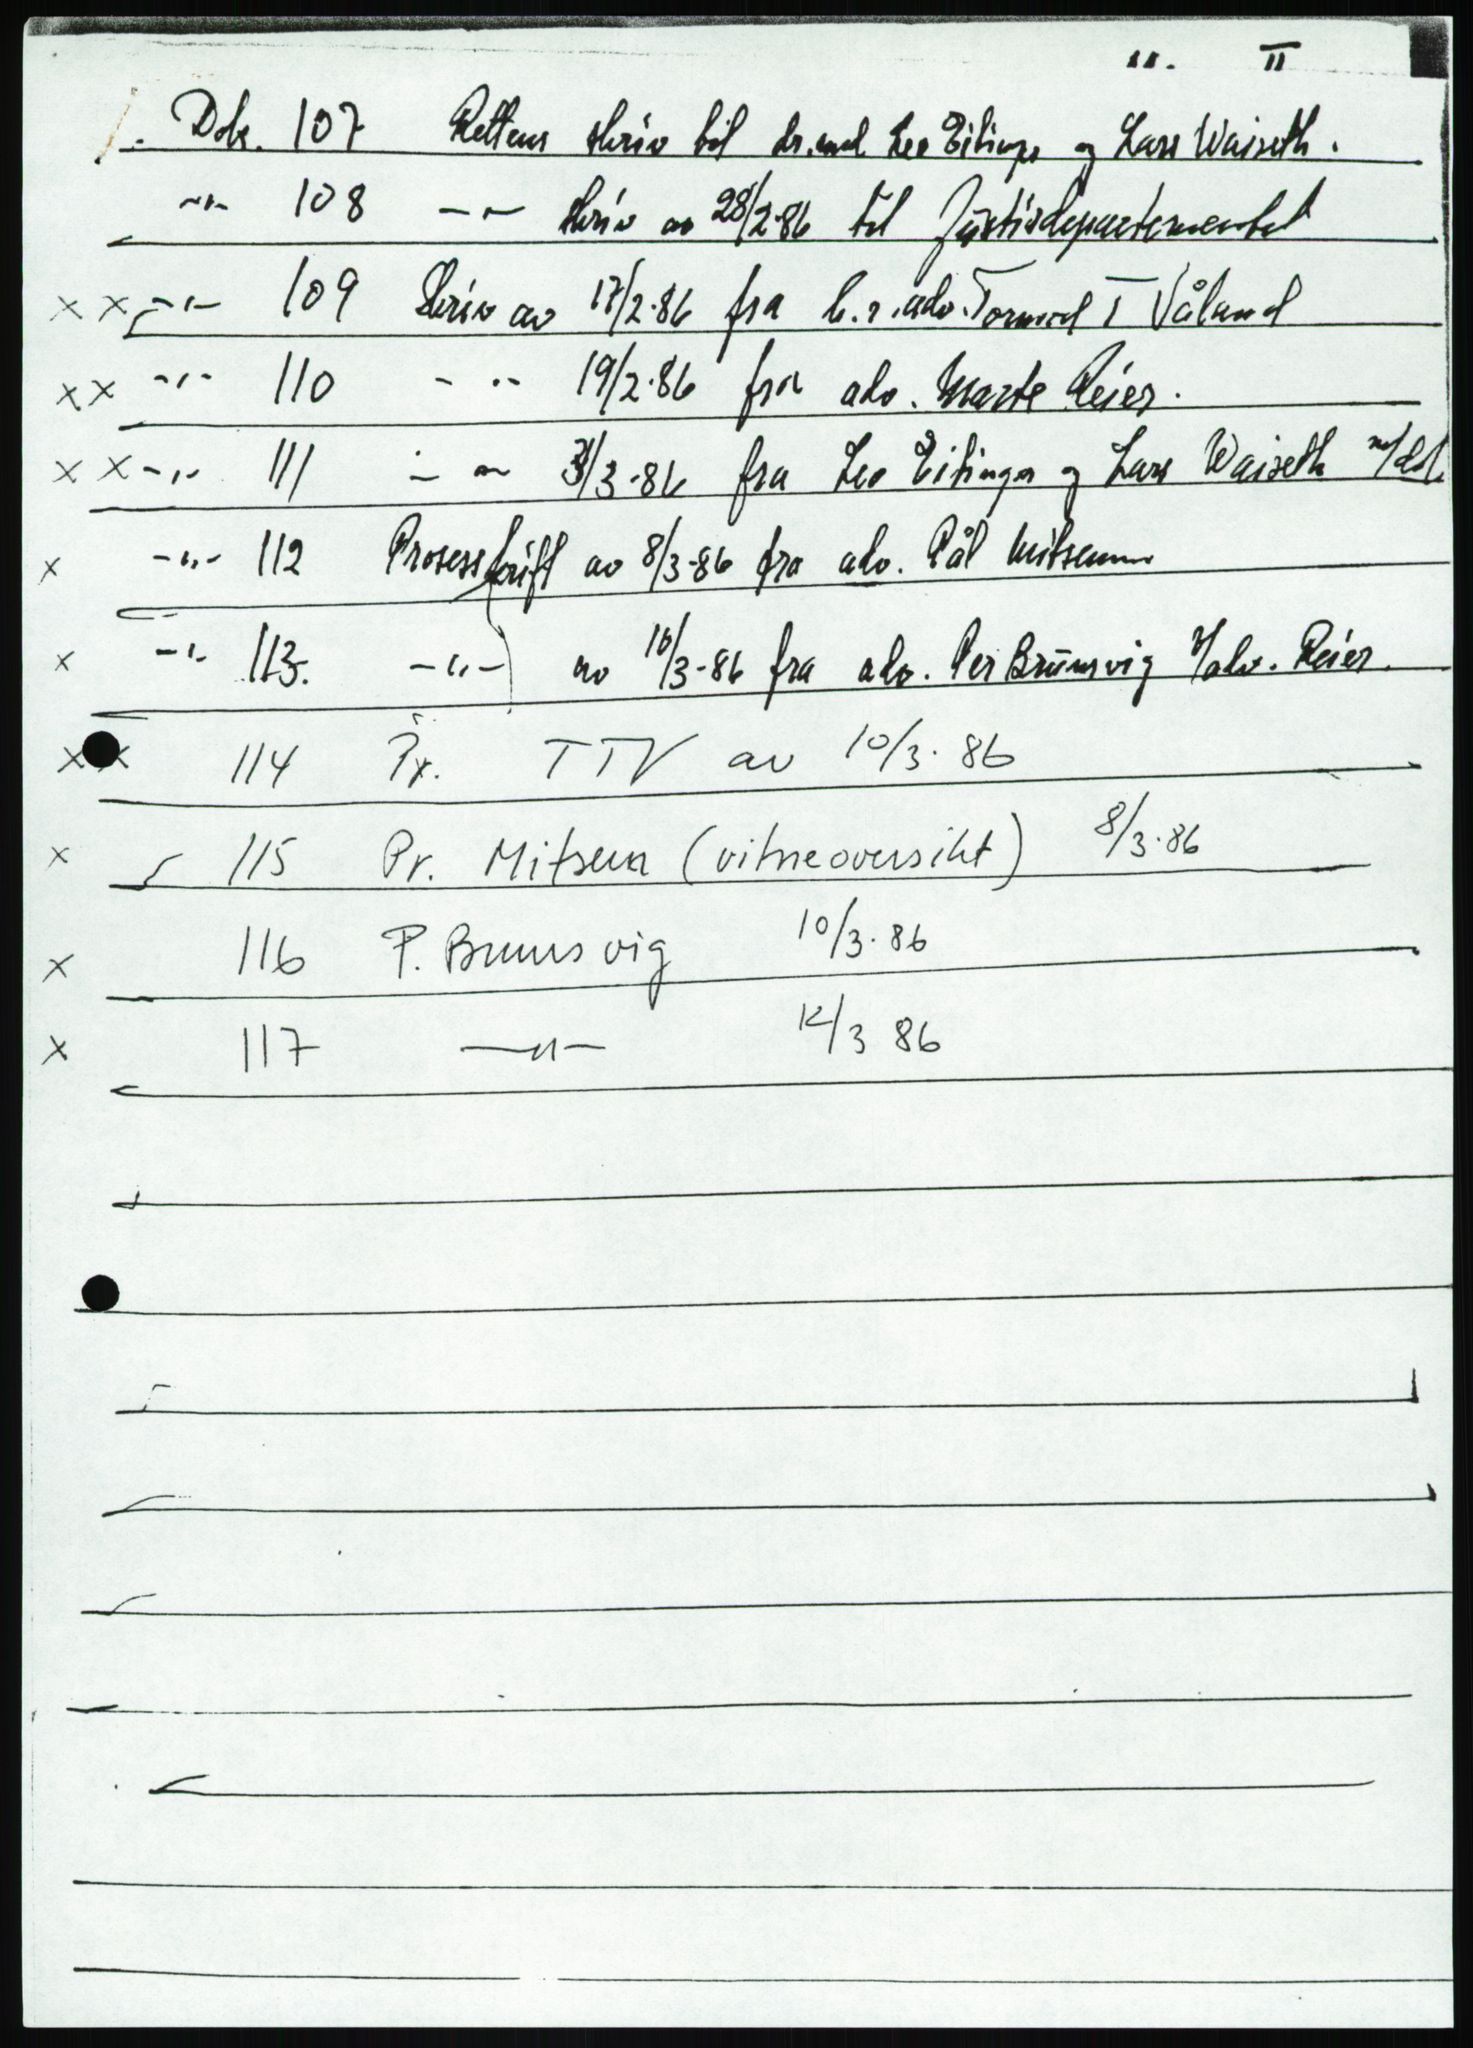 11. II
Dok. 107 Rettens skriv til dr. med. Leo Eitinger og Lars Waiseth.
-"- 108 -"- skriv av 28/2-86 til Justisdepartementet
x x -"- 109 Skriv av 17/2-86 fra h.r.adv. Tormod T Våland
x x -"- 110 - " - 19/2-86 fra adv. Marte Reier.
x x -"- 111 - " - 3/3-86 fra Leo Eitinger og Lars Waiseth
x -"- 112 Prosesskrift av 8/3-86 fra adv. Pål Mitsem
x -"- 113. -"- av 10/3-86 fra adv. Per Brunsvig v/adv. Reier.
x x 114 Pr. TTV av 10/3-86
x 115 Pr. Mitsem (vitneoversikt) 8/3-86
x 116 P. Brunsvig 10/3-86
x 117 -"- 12/3 86